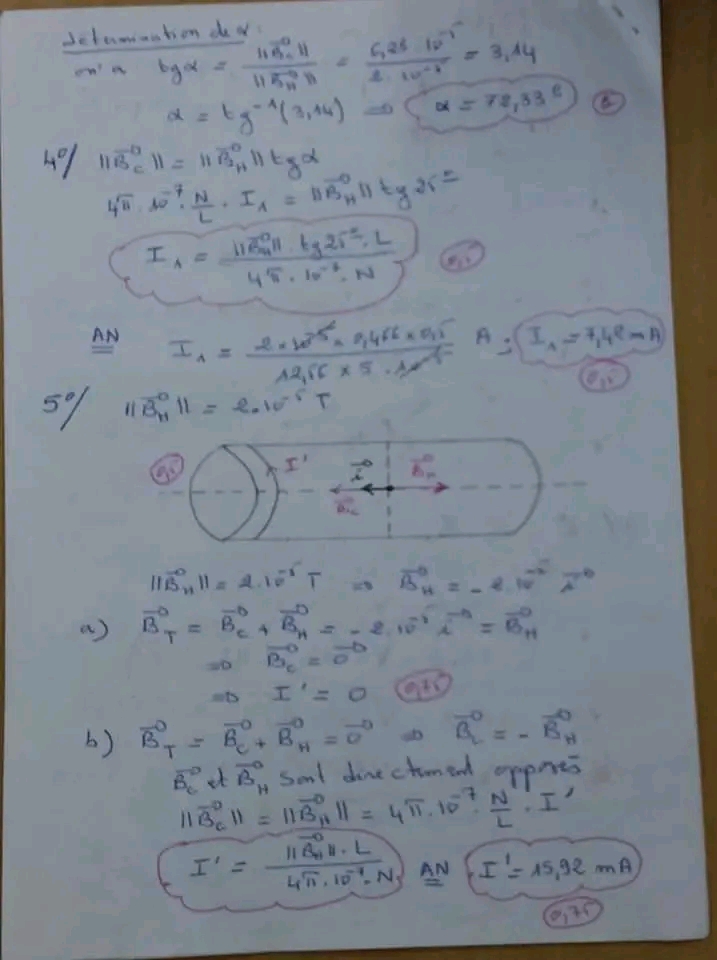 Determination de α :
on a tgα = ||B⃗c|| / ||B⃗H|| = 6,28 · 10⁻⁵ / 2 · 10⁻⁵ = 3,14
α = tg⁻¹(3,14) ⇒ α = 72,33°
4°/ ||B⃗c|| = ||B⃗H|| tgα
4π · 10⁻⁷ · N/L · I₁ = ||B⃗H|| tg 25°
I₁ = ||B⃗H|| · tg 25° · L / 4π · 10⁻⁷ · N 0,5
AN I₁ = 2 × 10⁻⁵ × 0,466 × 0,5 / 12,56 × 5 · 10⁻⁵ A ; I₁ = 7,42 mA
0,5
5°/ ||B⃗H|| = 2·10⁻⁵ T
0,5 I' i⃗ B⃗c
||B⃗H|| = 2·10⁻⁵ T ⇒ B⃗H = - 2·10⁻⁵ i⃗
a) B⃗T = B⃗c + B⃗H = - 2·10⁻⁵ i⃗ = B⃗H
⇒ B⃗c = 0⃗
⇒ I' = 0 0,75
b) B⃗T = B⃗c + B⃗H = 0⃗ ⇒ B⃗c = - B⃗H
B⃗c et B⃗H sont directement opposés
||B⃗c|| = ||B⃗H|| = 4π·10⁻⁷ · N/L · I'
I' = ||B⃗H|| · L / 4π·10⁻⁷·N AN I' = 15,92 mA
0,75